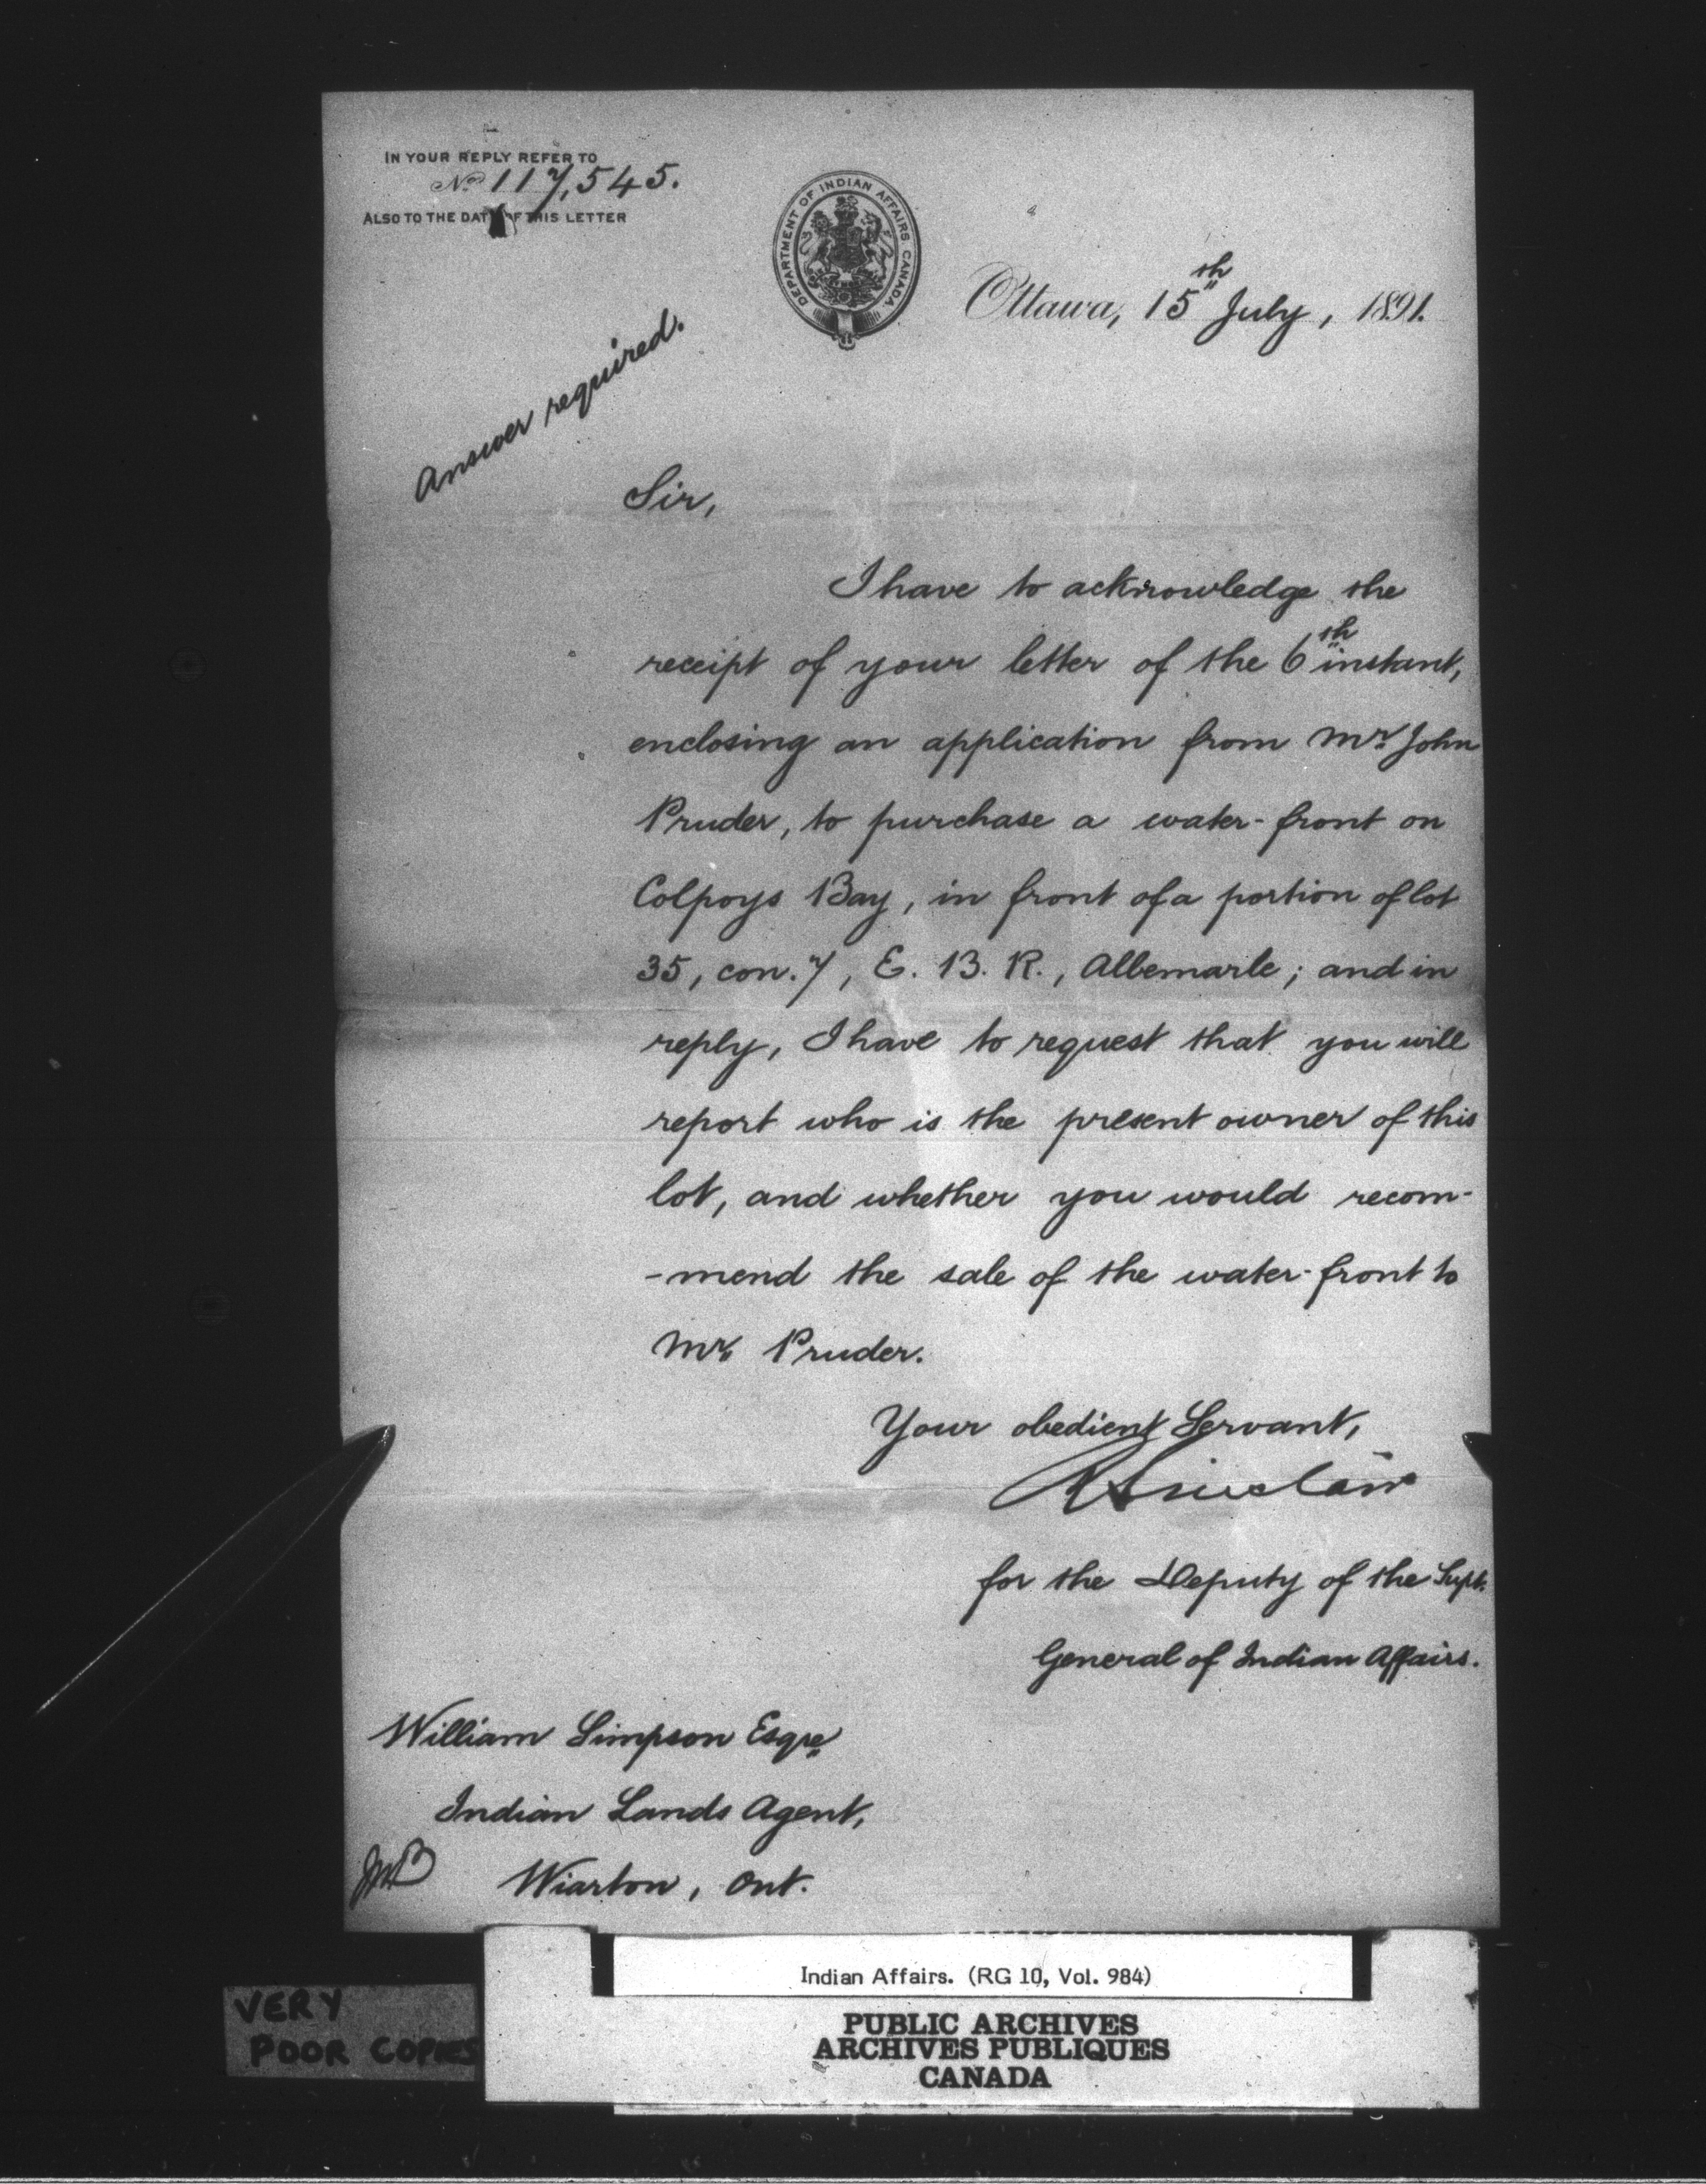 IN YOUR REPLY REFER TO
No 117,545.
ALSO TO THE DATE OF THIS LETTER
DEPARTMENT OF INDIAN AFFAIRS CANADA
Ottawa, 15th July, 1891.
Answer required.
Sir,
I have to acknowledge the
receipt of your letter of the 6th instant,
enclosing an application from Mr. John
Pruder, to purchase a water-front on
Colpoys Bay, in front of a portion of lot
35, con. 7, E. B. R., Albemarle; and in
reply, I have to request that you will
report who is the present owner of this
lot, and whether you would recom-
-mend the sale of the water-front to
Mr. Pruder.
Your obedient Servant,
R Sinclair
for the Deputy of the Supt.
General of Indian Affairs.
William Simpson Esqre
Indian Lands Agent,
Wiarton, Ont.
Indian Affairs. (RG 10, Vol. 984)
VERY
POOR COPIES
PUBLIC ARCHIVES
ARCHIVES PUBLIQUES
CANADA